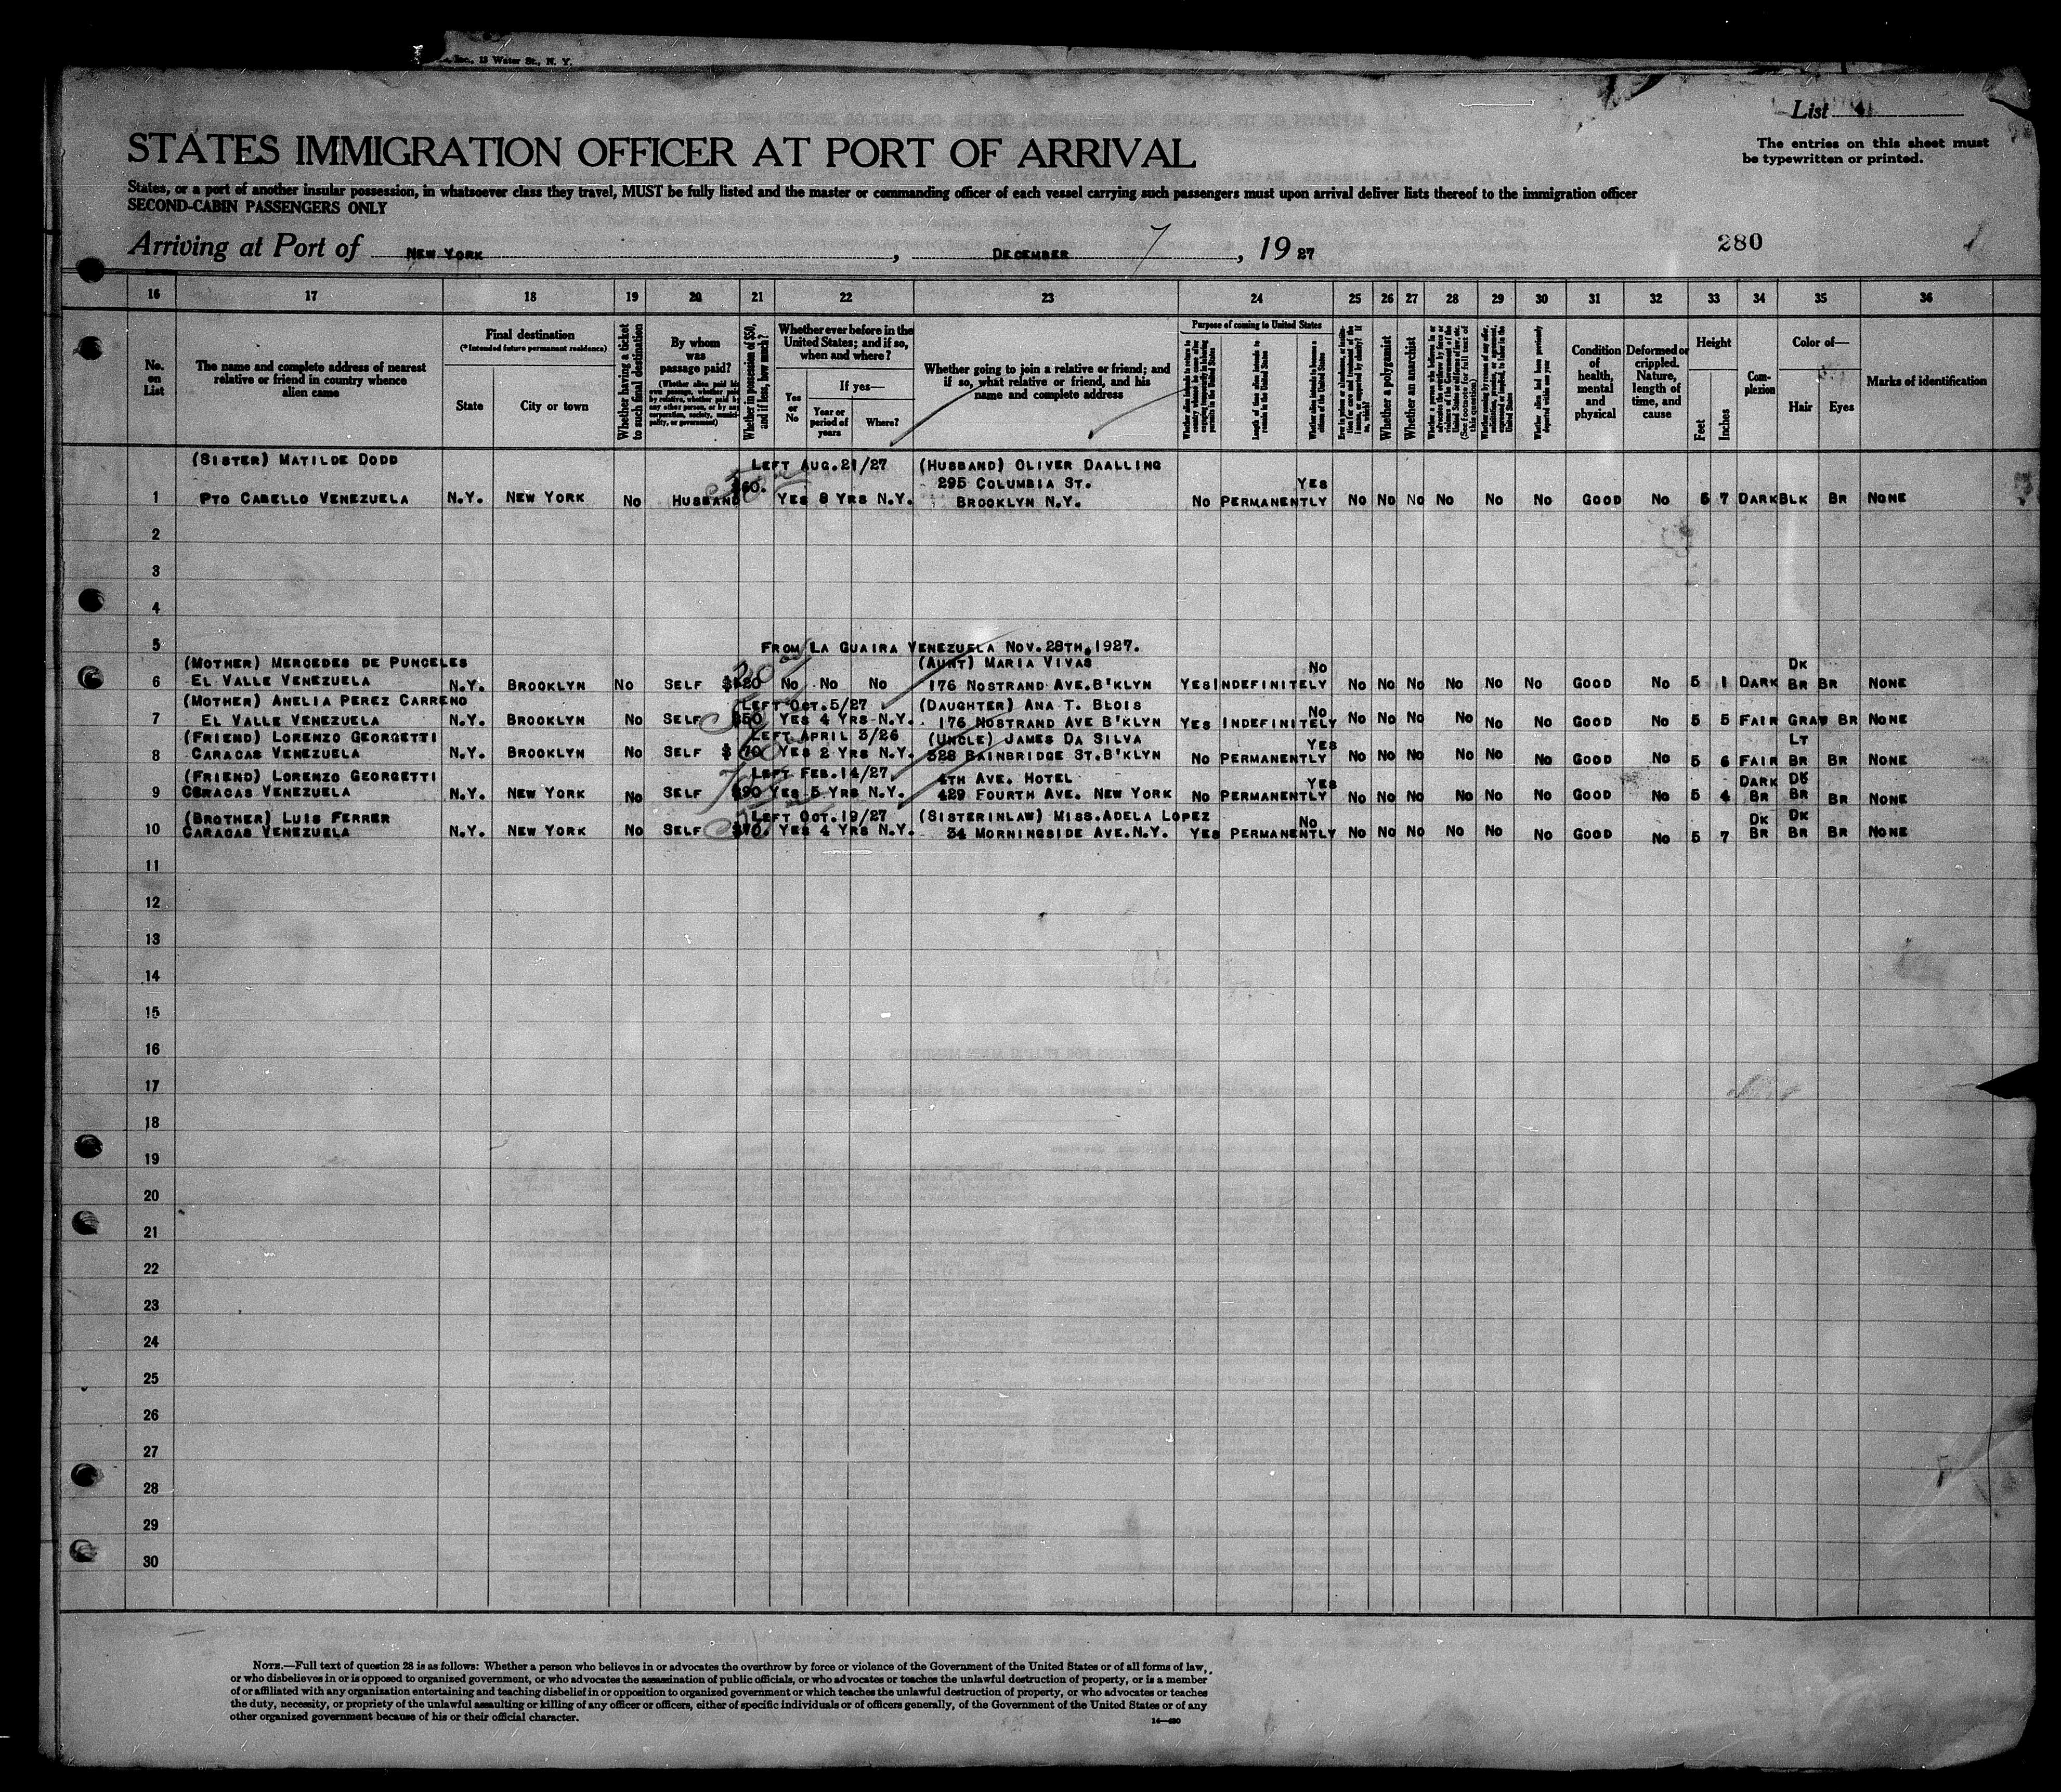 Inc., 13 Water St., N. Y.
List 4
STATES IMMIGRATION OFFICER AT PORT OF ARRIVAL
The entries on this sheet must
be typewritten or printed.
States, or a port of another insular possession, in whatsoever class they travel, MUST be fully listed and the master or commanding officer of each vessel carrying such passengers must upon arrival deliver lists thereof to the immigration officer
SECOND-CABIN PASSENGERS ONLY
Arriving at Port of NEW YORK, DECEMBER 7, 1927
280
16 17 18 19 20 21 22 23 24 25 26 27 28 29 30 31 32 33 34 35 36
No. on List
The name and complete address of nearest relative or friend in country whence alien came
Final destination
(*Intended future permanent residence)
State
City or town
Whether having a ticket to such final destination
By whom was passage paid?
(Whether alien paid his own passage, whether paid by relative, whether paid by any other person, or by any corporation, society, municipality, or government)
Whether in possession of $50, and if less, how much?
Whether ever before in the United States; and if so, when and where?
Yes or No
If yes—
Year or period of years
Where?
Whether going to join a relative or friend; and if so, what relative or friend, and his name and complete address
Purpose of coming to United States
Length of time alien intends to remain in the United States
Whether alien intends to become a citizen of the United States
Whether a polygamist
Whether an anarchist
(See footnote for full text of this question)
Whether alien had been previously deported within one year
Condition of health, mental and physical
Deformed or crippled. Nature, length of time, and cause
Height
Feet
Inches
Complexion
Color of—
Hair
Eyes
Marks of identification
(SISTER) MATILDE DODD LEFT AUG.21/27 (HUSBAND) OLIVER DAALLING
295 COLUMBIA ST. YES
1 PTO CABELLO VENEZUELA N.Y. NEW YORK NO HUSBAND $60. YES 8 YRS N.Y. BROOKLYN N.Y. NO PERMANENTLY NO NO NO NO NO NO GOOD NO 5 7 DARK BLK BR NONE
2
3
4
5 FROM LA GUAIRA VENEZUELA NOV.28TH,1927.
(MOTHER) MERCEDES DE PUNCELES (AUNT) MARIA VIVAS NO DK
6 EL VALLE VENEZUELA N.Y. BROOKLYN NO SELF $120 NO NO NO 176 NOSTRAND AVE.B'KLYN YES INDEFINITELY NO NO NO NO NO NO GOOD NO 5 1 DARK BR BR NONE
(MOTHER) ANELIA PEREZ CARRENO LEFT OCT.5/27 (DAUGHTER) ANA T. BLOIS NO
7 EL VALLE VENEZUELA N.Y. BROOKLYN NO SELF $50 YES 4 YRS N.Y. 176 NOSTRAND AVE B'KLYN YES INDEFINITELY NO NO NO NO NO NO GOOD NO 5 5 FAIR GRAY BR NONE
(FRIEND) LORENZO GEORGETTI LEFT APRIL 3/26 (UNCLE) JAMES DA SILVA YES LT
8 CARACAS VENEZUELA N.Y. BROOKLYN NO SELF $ 70 YES 2 YRS N.Y. 328 BAINBRIDGE ST.B'KLYN NO PERMANENTLY NO NO NO NO NO NO GOOD NO 5 6 FAIR BR BR NONE
(FRIEND) LORENZO GEORGETTI LEFT FEB.14/27 4TH AVE. HOTEL YES DARK DK
9 CARACAS VENEZUELA N.Y. NEW YORK NO SELF $90 YES 5 YRS N.Y. 429 FOURTH AVE. NEW YORK NO PERMANENTLY NO NO NO NO NO NO GOOD NO 5 4 BR BR BR NONE
(BROTHER) LUIS FERRER LEFT OCT.19/27 (SISTERINLAW) MISS.ADELA LOPEZ NO DK DK
10 CARACAS VENEZUELA N.Y. NEW YORK NO SELF $70. YES 4 YRS N.Y. 34 MORNINGSIDE AVE.N.Y. YES PERMANENTLY NO NO NO NO NO NO GOOD NO 5 7 BR BR BR NONE
11
12
13
14
15
16
17
18
19
20
21
22
23
24
25
26
27
28
29
30
NOTE.—Full text of question 28 is as follows: Whether a person who believes in or advocates the overthrow by force or violence of the Government of the United States or of all forms of law,
or who disbelieves in or is opposed to organized government, or who advocates the assassination of public officials, or who advocates or teaches the unlawful destruction of property, or is a member
of or affiliated with any organization entertaining and teaching disbelief in or opposition to organized government or which teaches the unlawful destruction of property, or who advocates or teaches
the duty, necessity, or propriety of the unlawful assaulting or killing of any officer or officers, either of specific individuals or of officers generally, of the Government of the United States or of any
other organized government because of his or their official character.